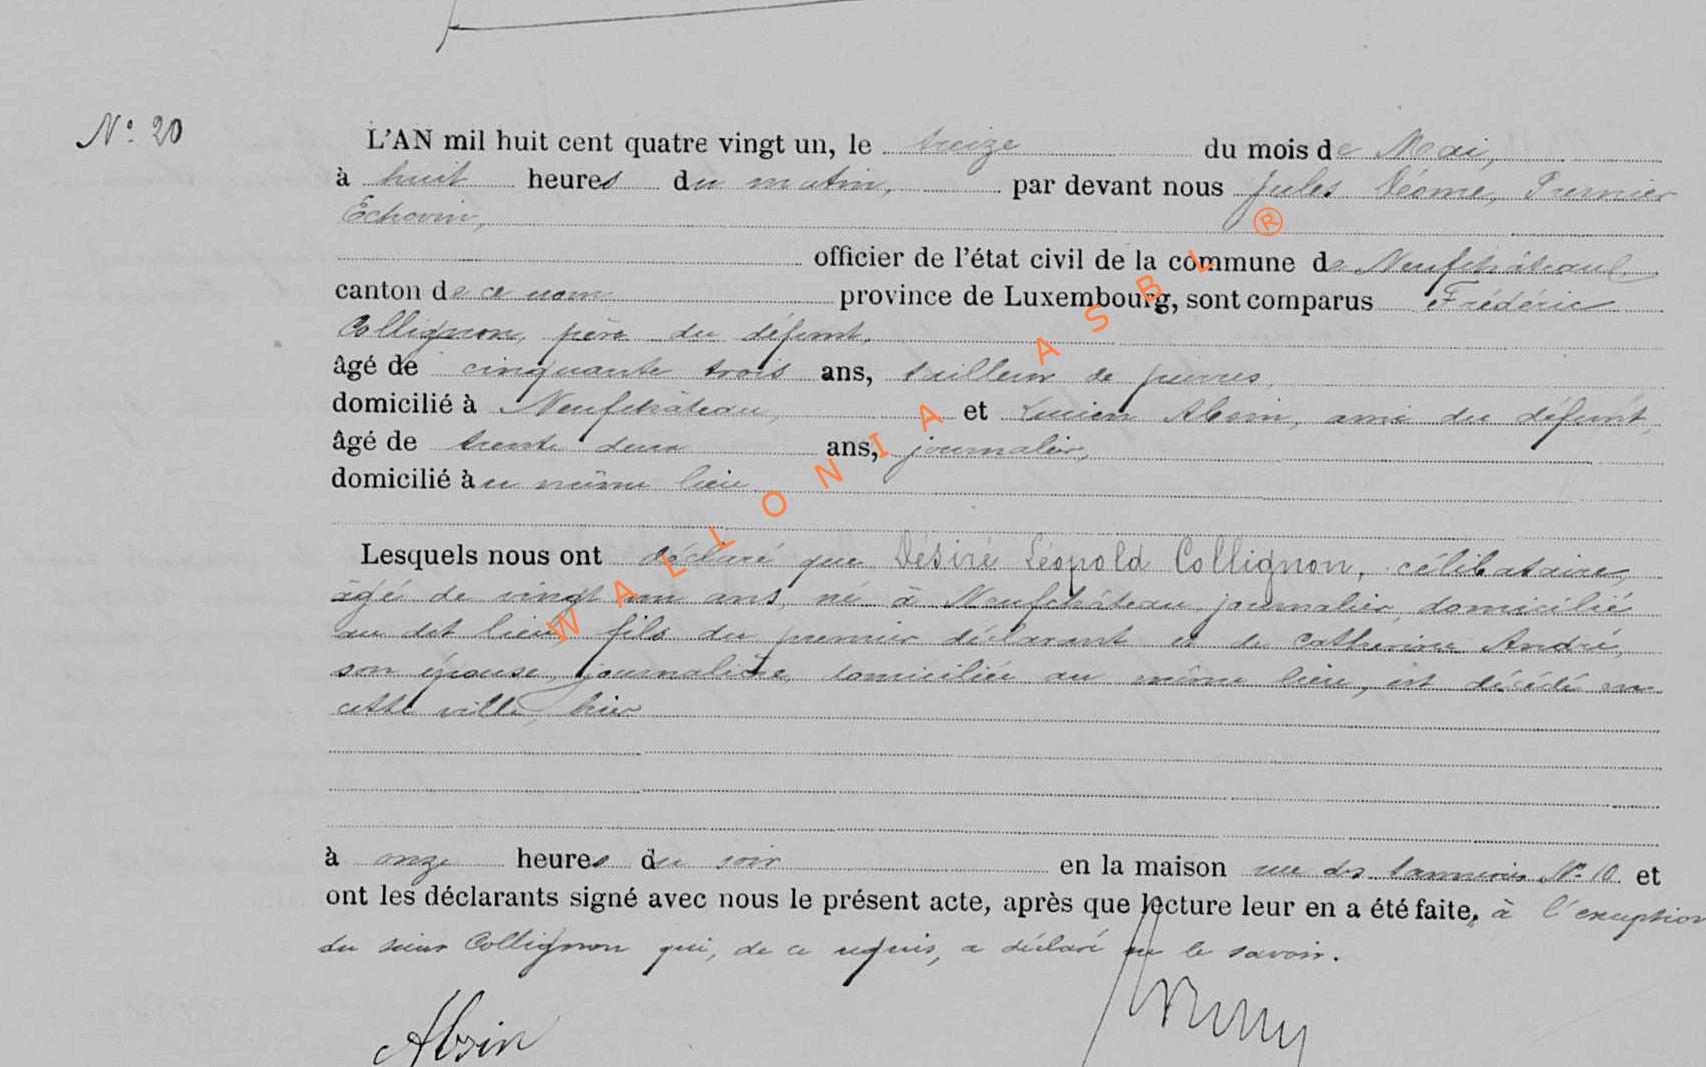 N° 20
L'AN mil huit cent quatre vingt un, le treize du mois de Mai,
à huit heures du matin, par devant nous Jules Déome, Premier
Echevin,
officier de l'état civil de la commune de Neufchâteau
canton de ce nom province de Luxembourg, sont comparus Frédéric
Collignon, père du défunt,
âgé de cinquante trois ans, tailleur de pierres,
domicilié à Neufchâteau, et Lucien Absin, ami du défunt,
âgé de trente deux ans, journalier,
domicilié à ce même lieu
Lesquels nous ont déclaré que Désiré Léopold Collignon, célibataire,
âgé de vingt un ans, né à Neufchâteau, journalier, domicilié
au dit lieu, fils du premier déclarant et de Catherine André,
son épouse, journalière, domiciliée au même lieu, est décédé en
cette ville, hier
à onze heures du soir en la maison rue des tanneries N° 10 et
ont les déclarants signé avec nous le présent acte, après que lecture leur en a été faite, à l'exception
du sieur Collignon qui, de ce requis, a déclaré ne le savoir.
Absin
WALLONIA ASBL ®